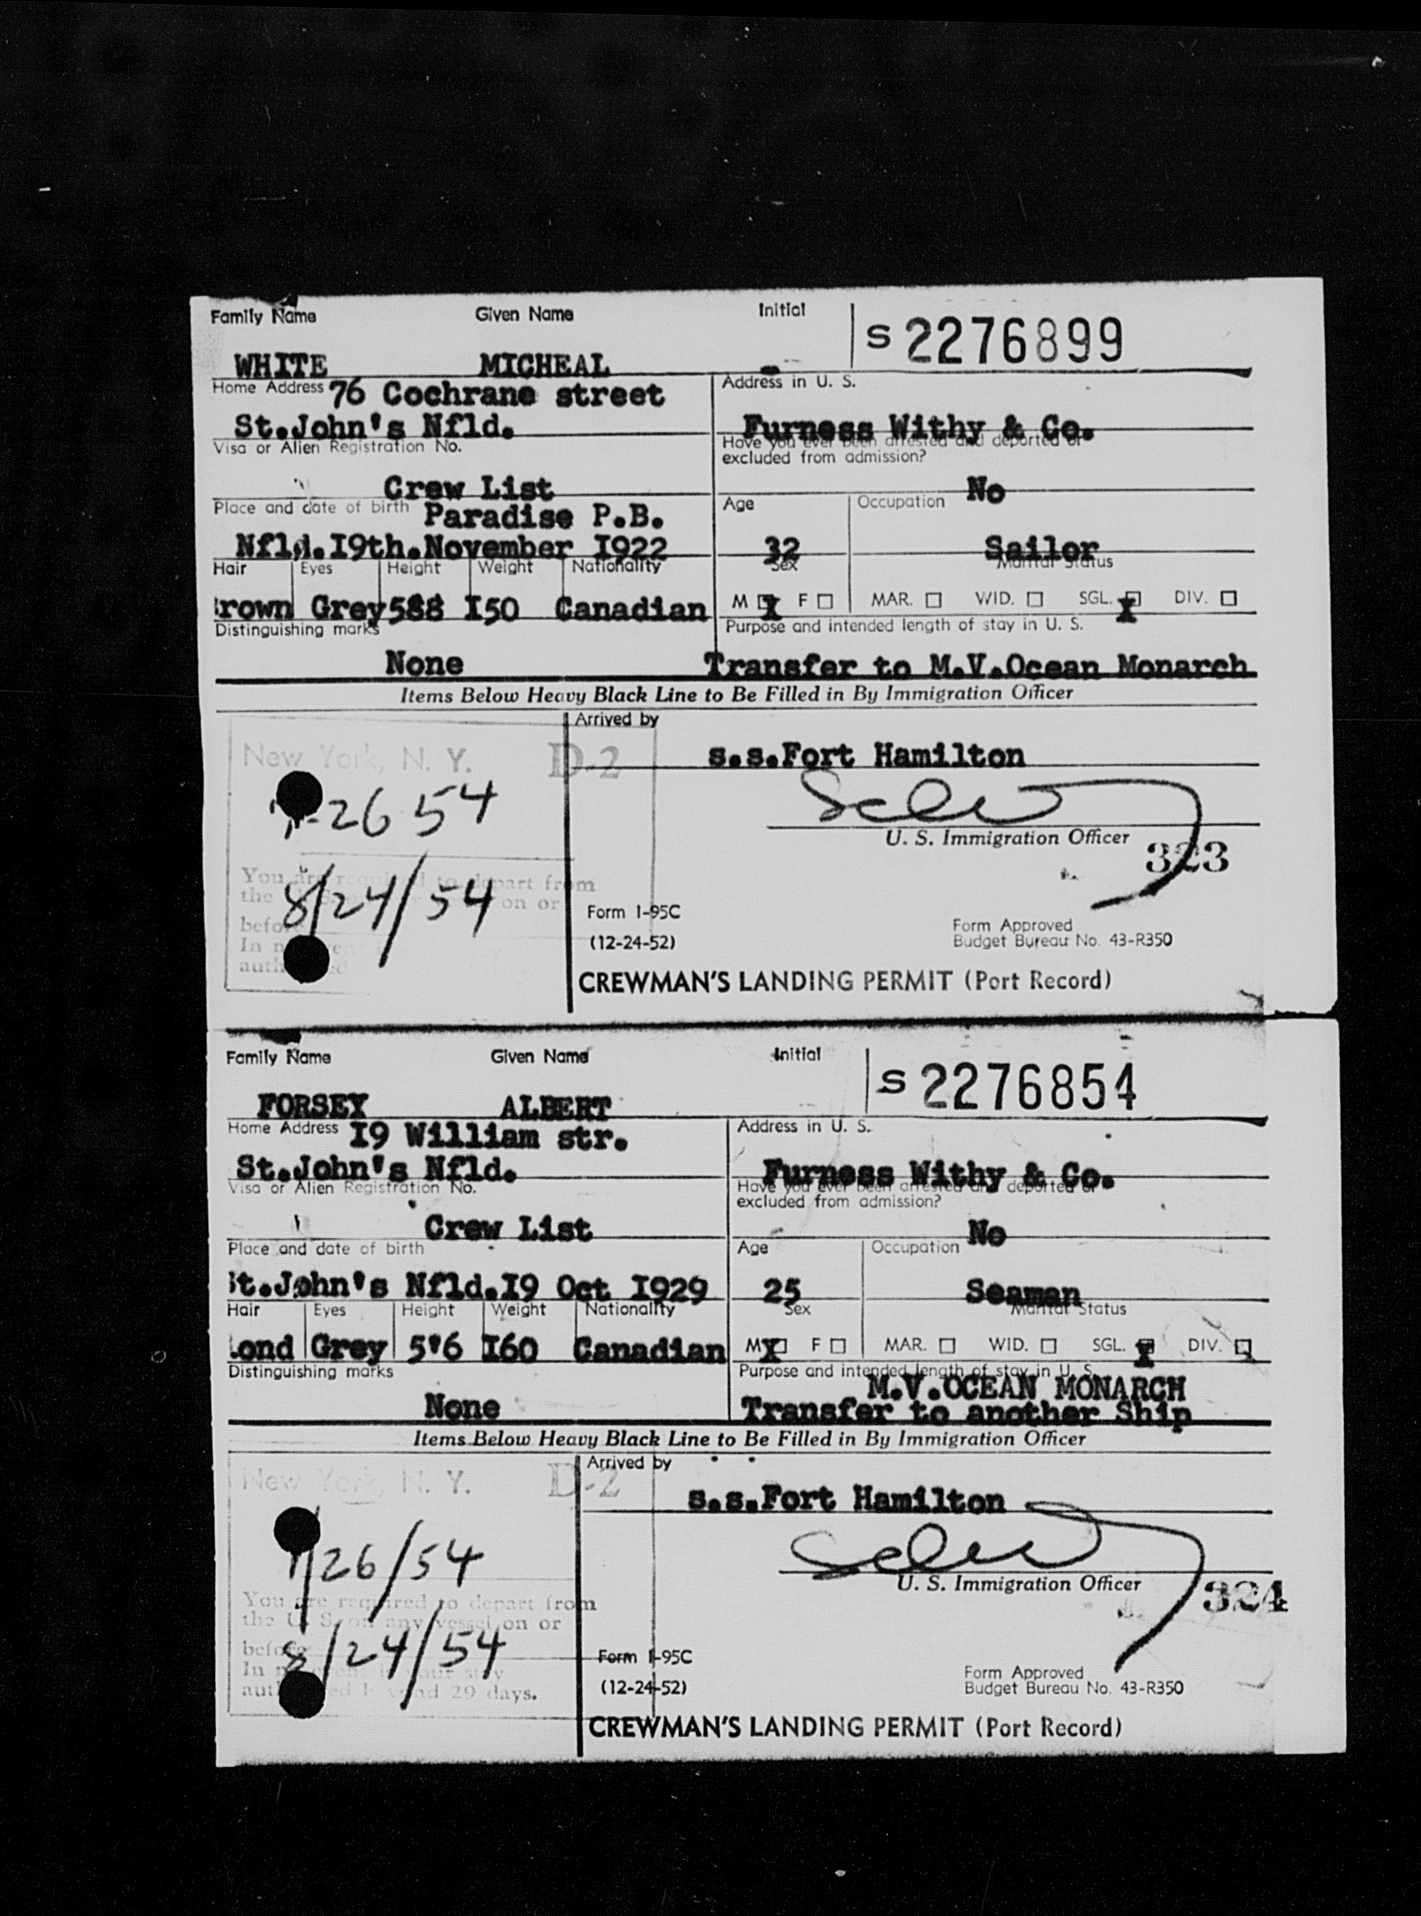 Family Name Given Name Initial
S 2276899
WHITE MICHEAL -
Home Address 76 Cochrane street Address in U. S.
St.John's Nfld. Furness Withy & Co.
Visa or Alien Registration No. Have you ever been arrested and deported or
excluded from admission?
Crew List No
Place and date of birth Paradise P.B. Age Occupation
Nfld.I9th.November I922 32 Sailor
Hair Eyes Height Weight Nationality Sex Marital Status
rown Grey 588 I50 Canadian M X F MAR. WID. SGL. X DIV.
Distinguishing marks Purpose and intended length of stay in U. S.
None Transfer to M.V.Ocean Monarch
Items Below Heavy Black Line to Be Filled in By Immigration Officer
Arrived by
New York, N. Y. D-2 s.s.Fort Hamilton
26 54
U. S. Immigration Officer
323
You are required to depart from
the on or
8/24/54
before
In
Form I-95C Form Approved
(12-24-52) Budget Bureau No. 43-R350
CREWMAN'S LANDING PERMIT (Port Record)
Family Name Given Name Initial
S 2276854
FORSEY ALBERT
Home Address I9 William str. Address in U. S.
St.John's Nfld. Furness Withy & Co.
Visa or Alien Registration No. Have you ever been arrested and deported or
excluded from admission?
Crew List No
Place and date of birth Age Occupation
St.John's Nfld.I9 Oct I929 25 Seaman
Hair Eyes Height Weight Nationality Sex Marital Status
lond Grey 5'6 I60 Canadian M X F MAR. WID. SGL. X DIV.
Distinguishing marks Purpose and intended length of stay in U. S.
M.V.OCEAN MONARCH
None Transfer to another Ship
Items Below Heavy Black Line to Be Filled in By Immigration Officer
Arrived by
New York, N. Y. D-2 s.s.Fort Hamilton
/26/54
U. S. Immigration Officer
324
You are required to depart from
the U. S. on any vessel on or
before 8/24/54
In no event is your stay
authorized beyond 29 days.
Form I-95C Form Approved
(12-24-52) Budget Bureau No. 43-R350
CREWMAN'S LANDING PERMIT (Port Record)